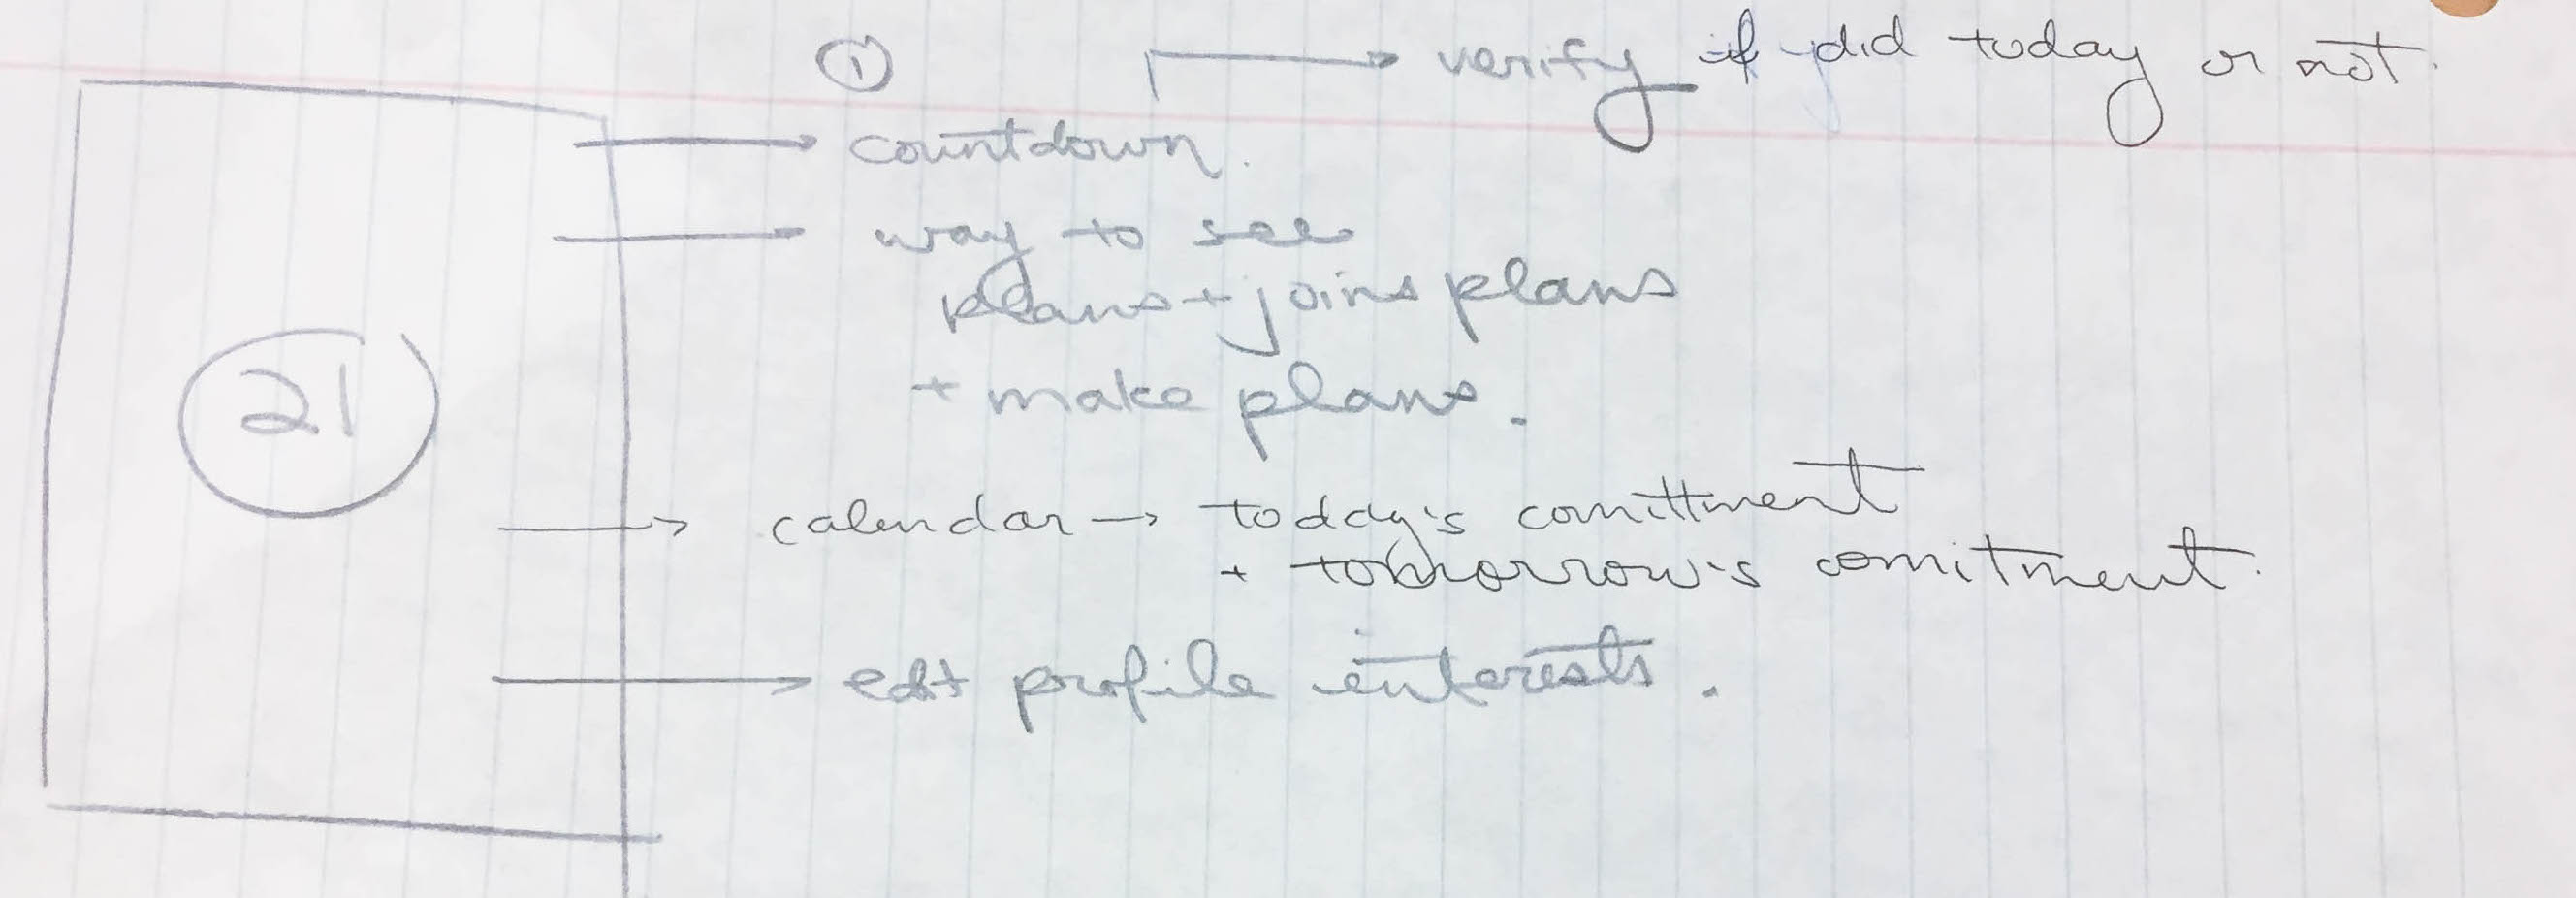 ① verify if did today or not.
countdown.
way to see
plans + joins plans
+ make plans.
21
calendar → today's comittment
+ tomorrow's comitment.
edit profile interests.